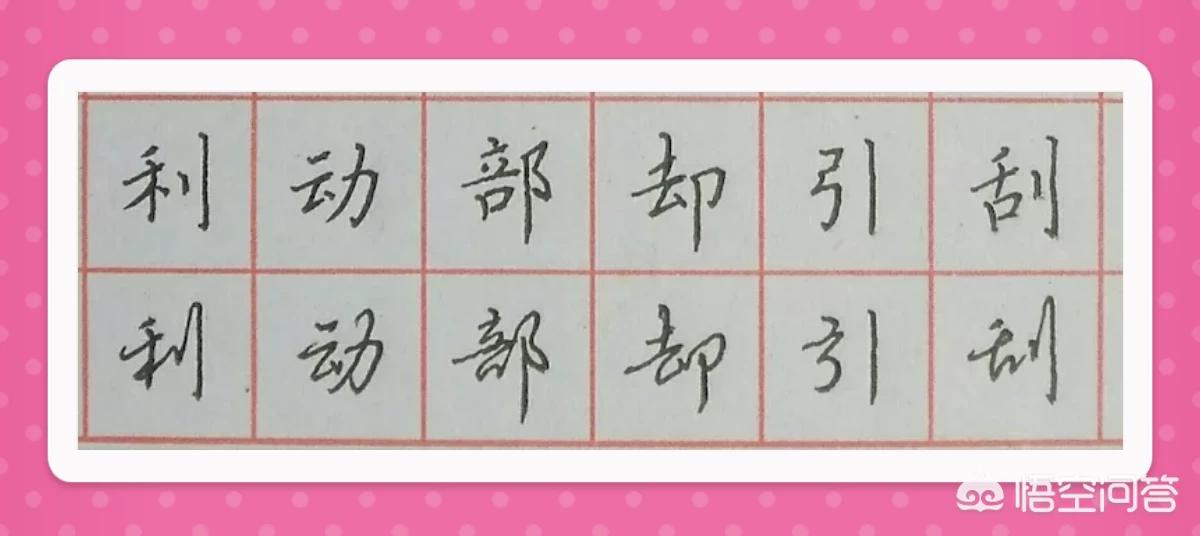 利动部却引刮
利动部却引刮
悟空问答